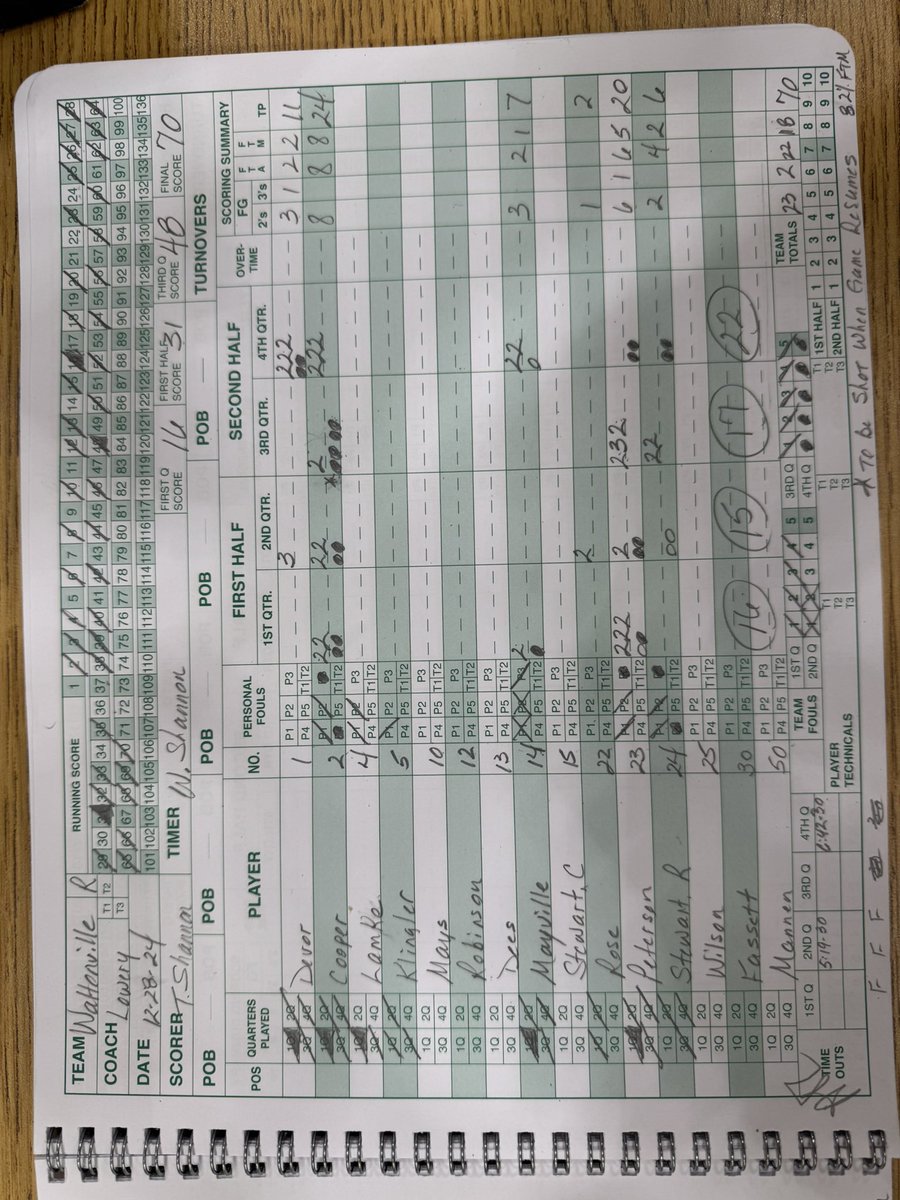 TEAM Wattonville R
RUNNING SCORE 1 2 3 4 5 6 7 8 9 10 11 12 13 14 15 16 17 18 19 20 21 22 23 24 25 26 27 28
COACH Lowery T1 T2 T3
29 30 31 32 33 34 35 36 37 38 39 40 41 42 43 44 45 46 47 48 49 50 51 52 53 54 55 56 57 58 59 60 61 62 63 64
65 66 67 68 69 70 71 72 73 74 75 76 77 78 79 80 81 82 83 84 85 86 87 88 89 90 91 92 93 94 95 96 97 98 99 100
DATE 12-28-24
101 102 103 104 105 106 107 108 109 110 111 112 113 114 115 116 117 118 119 120 121 122 123 124 125 126 127 128 129 130 131 132 133 134 135 136
SCORER T. Shannon TIMER W. Shannon FIRST Q SCORE 16 FIRST HALF SCORE 31 THIRD Q SCORE 48 FINAL SCORE 70
POB POB POB POB POB TURNOVERS
POS QUARTERS PLAYED PLAYER NO. PERSONAL FOULS FIRST HALF SECOND HALF OVER-TIME SCORING SUMMARY
1ST QTR. 2ND QTR. 3RD QTR. 4TH QTR. FG 2's 3's FTA FTM TP
1Q 2Q 3Q 4Q Devor 1 P1 P2 P3 P4 P5 T1 T2 3 222 3 1 2 2 11
1Q 2Q 3Q 4Q Cooper 2 P1 P2 P4 P5 T1 T2 22 22 2 222 8 8 8 24
1Q 2Q 3Q 4Q Lamke 4 P1 P2 P3 P4 P5 T1 T2
1Q 2Q 3Q 4Q Klingler 5 P1 P2 P3 P4 P5 T1 T2
1Q 2Q 3Q 4Q Mays 10 P1 P2 P3 P4 P5 T1 T2
1Q 2Q 3Q 4Q Robinson 12 P1 P2 P3 P4 P5 T1 T2
1Q 2Q 3Q 4Q Dees 13 P1 P2 P3 P4 P5 T1 T2
1Q 2Q 3Q 4Q Mayville 14 P1 P2 P3 P4 P5 T1 T2 2 22 3 2 1 7
1Q 2Q 3Q 4Q Stewart, C 15 P1 P2 P3 P4 P5 T1 T2
1Q 2Q 3Q 4Q Rose 22 P1 P2 P3 P4 P5 T1 T2 2 1 2
1Q 2Q 3Q 4Q Peterson 23 P1 P2 P4 P5 T1 T2 222 2 232 6 1 6 5 20
1Q 2Q 3Q 4Q Stewart, R 24 P1 P2 P5 T1 T2 00 22 2 4 2 6
1Q 2Q 3Q 4Q Wilson 25 P1 P2 P3 P4 P5 T1 T2
1Q 2Q 3Q 4Q Fassett 30 P1 P2 P3 P4 P5 T1 T2 16 15 17 22
1Q 2Q 3Q 4Q Mannen 50 P1 P2 P3 P4 P5 T1 T2 TEAM TOTALS 23 2 22 18 70
TIME OUTS 1ST Q 2ND Q 5:19.30 3RD Q 4TH Q 6:42.30
TEAM FOULS 1ST Q 1 2 3 4 5 3RD Q 1 2 3 4 5
2ND Q 1 2 3 4 5 4TH Q 1 2 3 4 5
PLAYER TECHNICALS T1 T2 T3 T1 T2 T3 T1 T2 T3 T1 T2
1ST HALF 1 2 3 4 5 6 7 8 9 10
2ND HALF 1 2 3 4 5 6 7 8 9 10
F F F
* To Be Shot When Game Resumes 82% FTM